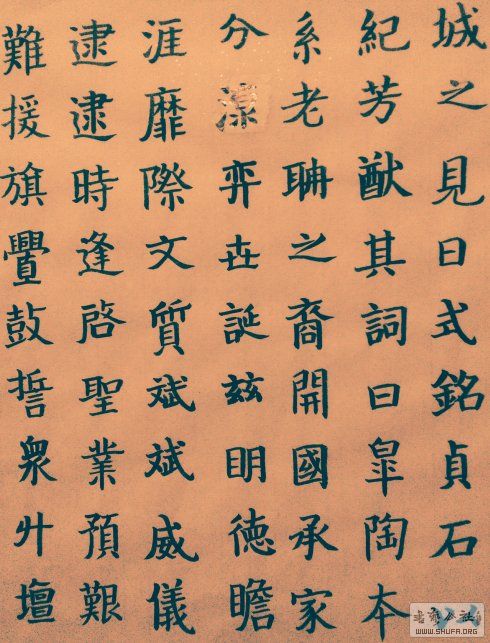 城之見日式銘貞石
紀芳猷其詞曰皐陶本
系老聃之裔開國承家
分弈世誕兹眀徳瞻
涯靡際文質斌斌威儀
逮逮時逢啓聖業預艱
難援旗舋鼓誓衆升壇
WWW.SHUFA.ORG